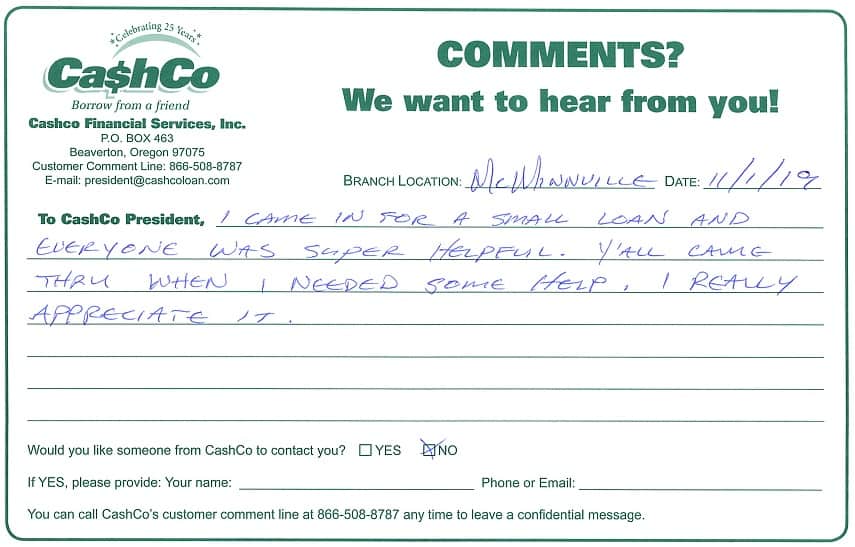 Celebrating 25 Years
Ca$hCo
Borrow from a friend
Cashco Financial Services, Inc.
P.O. BOX 463
Beaverton, Oregon 97075
Customer Comment Line: 866-508-8787
E-mail: president@cashcoloan.com
COMMENTS?
We want to hear from you!
BRANCH LOCATION: McMinnville DATE: 11/1/19
To CashCo President, I CAME IN FOR A SMALL LOAN AND
EVERYONE WAS SUPER HELPFUL. Y'ALL CAME
THRU WHEN I NEEDED SOME HELP. I REALLY
APPRECIATE IT.
Would you like someone from CashCo to contact you? YES NO
If YES, please provide: Your name: Phone or Email:
You can call CashCo's customer comment line at 866-508-8787 any time to leave a confidential message.